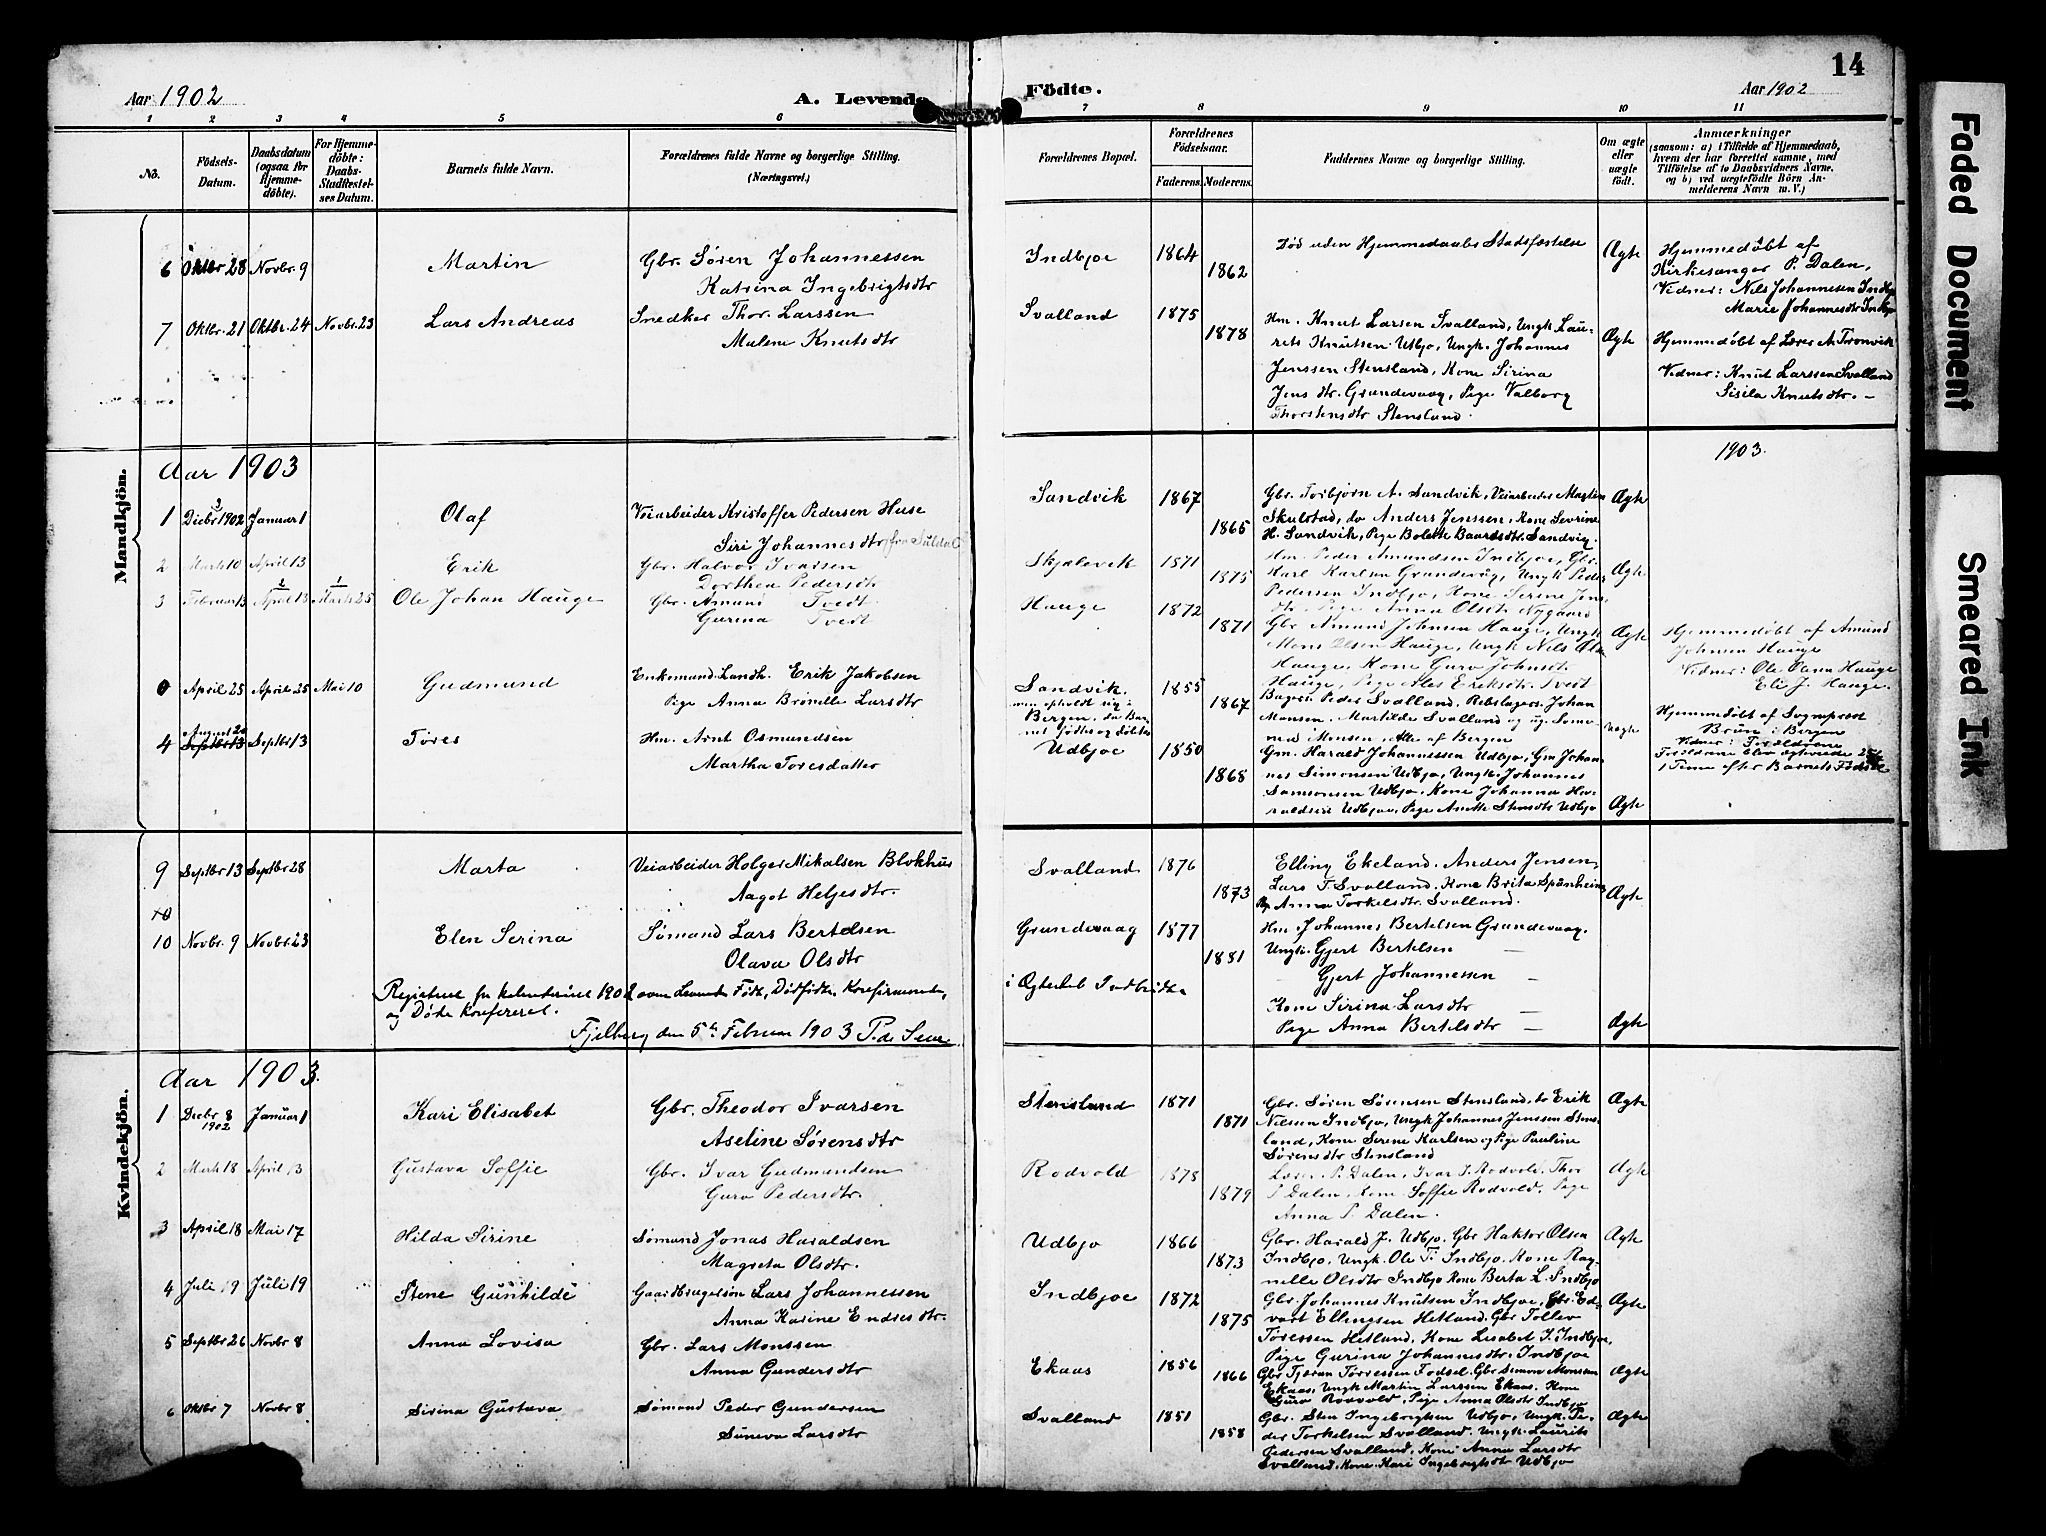 14
Aar 1902
A. Levende
Födte.
Aar 1902
1 2 3 4 5 6 7 8 9 10 11
No.
Födsels-Datum.
Daabsdatum (ogsaa for Hjemme-döbte).
For Hjemme-döbte: Daabs-Stadfæstel-ses Datum.
Barnets fulde Navn.
Forældrenes fulde Navne og borgerlige Stilling. (Næringsvei.)
Forældrenes Bopæl.
Forældrenes Födselsaar.
Faderens. Moderens.
Faddernes Navne og borgerlige Stilling.
Om ægte eller uægte födt.
Anmærkninger
(saasom: a) i Tilfælde af Hjemmedaab, hvem der har forrettet samme, med Tilföielse af to Daabsvidners Navne, og b) ved uægtefödte Börn An-melderens Navn m. V.)
6 Oktbr 28 Novbr. 9 Martin Gbr. Søren Johannessen
Katrina Ingebrigtsdtr
Indbjoe 1864 1862 Død uden Hjemmedaabs Stadfæstelse Ægte
Hjemmedøbt af
Kirkesanger P. Dalen,
Vidner: Nils Johannesen Indbj
Marie Johannesdtr Indbj
7 Oktbr. 21 Oktbr. 24 Novbr. 23 Lars Andreas Snedker Thor. Larssen
Malene Knutsdtr
Svalland 1875 1878 Hm. Knut Larsen Svalland, Ungk Lau-
rets Knutsen Udbjo, Ungk. Johannes
Jenssen Stensland, Kone Sirina
Jensdtr. Grundevaag, Pige Valborg
Thorstensdtr Stensland.
Ægte
Hjemmedøbt af Lærer A. Tronvik
Vidner: Knut Larssen Svalland
Sisila Knutsdtr. –
Mandkjön.
Aar 1903
1903.
1 Decbr 3 1902 Januar 1 Olaf Veiarbeider Kristoffer Pedersen Huse
Siri Johannesdtr (fra Suldal
Sandvik 1867 1865 Gbr. Torbjørn A. Sandvik, Veiarbeider Martin
Skulstad, do Anders Jenssen, Kone Sevrine
H. Sandvik, Pige Bolette Baardsdtr. Sandvig.
Ægte
2 Marts 10 April 13 Erik Gbr. Halvor Ivarsen
Dorthea Pedersdtr
Skjelevik 1871 1875 Hm. Peder Amundsen Indbjoe, Gbr.
Karl Karlsen Grundevåg, Ungk Peder
Pedersen Indbjo, Kone Serine Jens
dtr, Pige Anna Olsdtr Nygaard
Ægte
3 Februar 13 April 13 2 Marts 25 1 Ole Johan Hauge Gbr. Amund Tvedt
Gurina Tvedt
Hauge 1872 1871 Gbr Amund Johnsen Hauge, Ungk
Mons Olsen Hauge, Ungk Nils Ols
Hauge, Kone Guro Johnsdtr.
Hauge, Pige Eriksdtr. Tvedt
Ægte
Hjemmedøbt af Amund
Johnsen Hauge
Vidner: Ole Olsen Hauge
Eli J. Hauge.
0 April 25 April 25 Mai 10 Gudmund Enkemand Landh. Erik Jakobsen
Pige Anna Brønelle Larsdtr
Sandvik.
men opholdt sig i
Bergen, da Bar
net fødtes og døbtes
1855 1867 Bager Peder Svalland, Rebslager Johan
Monsen, Martilde Svalland og
Monsen, Alle af Bergen
Uægte
Hjemmedøbt af Sogneprest
Bruun i Bergen
Vidner: Forældrene
Forældrene blev ægteviede
1 Time efter Barnets Fødsel
4 August 20 Septbr 13 Septbr 13 Tøres Hm. Arnt Osmundsen
Martha Toresdatter
Udbjoe 1850 1868 Gm. Harald Johannessen Udbjo, Gm Johan-
nes Simonsen Udbjo, Ungk. Johannes
Samsonsen Udbjo. Kone Johanna Ha-
raldsen Udbjoe, Pige Anette Stensdtr Udbjo
Ægte
9 Septbr 13 Septbr 28 Marta Veiarbeider Holger Mikalsen Blokhus
Aagot Heljesdtr.
Svalland 1876 1873 Elling Ekeland. Anders Jensen,
Lars T. Svalland. Kone Brita Spånheim
Pg. Anna Torkelsdtr. Svalland.
Ægte
10
10 Novbr. 9 Novbr. 23 Elen Serina Sømand Lars Bertelsen
Olava Olsdtr
Grundevaag 1877 1881 Hm. Johannes Bertelsen Grundevaag.
Ungk. Gjert Bertelsen –
i Ægteskab Indbeidtn
Gjert Johannessen –
Kone Sirina Larsdtr –
Pige Anna Bertelsdtr –
Ægte
Registeret for kalenderaaret 1902 over Levende Fødte, Dødfødte, Konfirmerede,
og Døde konfereret.
Fjelberg den 5te Februar 1903 P. de Seue
Kvindekjön.
Aar 1903.
1 Decbr 8 1902 Januar 1 Kari Elisabet Gbr. Theodor Ivarsen
Aseline Sørensdtr
Stensland 1871 1871 Gbr. Søren Sørensen Stensland, do Erik
Nilsen Indbjo, Ungk Johannes Jenssen Stens-
land, Kone Serene Karlsen og Pige Pauline
Sørensdtr Stensland
Ægte
2 Marts 18 April 13 Gustava Soffie Gbr. Ivar Gudmundsen
Guro Pedersdtr.
Rødvold 1878 1879 Lærer P. Dalen, Ivar I. Rødvold, Thor
P Dalen, Kone Soffie Rødvold, Pige
Anna P. Dalen.
Ægte
3 April 18 Mai 17 Hilda Sirine Sømand Jonas Haraldsen
Magreta Olsdtr.
Udbjo 1866 1873 Gbr. Harald J. Udbjo. Gbr Haktor Olsen
Indbjo. Ungk Ole T. Indbjo. Kone Rag-
nelle Olsdtr Indbjo Kone Berta L. Indbjo
Ægte
4 Juli 19 Juli 19 Stene Gunhilde Gaardbrugersøn Lars Johannessen
Anna Karine Endresdtr.
Indbjoe 1872 1875 Gbr. Johannes Knutsen Indbjoe, Gbr. Ed-
vart Ellingsen Hetland. Gbr Tollev
Tøressen Hetland, Kone Lisabet I. Indbjoe,
Pige Gurina Johannesdtr. Indbjoe
Ægte
5 Septbr 26 Novbr 8 Anna Lovisa Gbr. Lars Monssen
Anna Gundersdtr
Ekaas 1856 1866 Gbr Tjeran Tørressen Fodsel. Gbr Simon Monsen
Ekaas, Ungk Martin Larssen Ekaas. Kone
Guro Rødvold, Pige Anna Olsdtr Indbjo
Ægte
6 Oktbr 7 Novbr 8 Sirina Gustava Sømand Peder Gundersen
Suneva Larsdtr
Svalland 1851 1858 Gbr. Sten Ingeborgtsen Udbjo, Ungk. Pe-
der Torkelsen Svalland. Ungk. Laurits
Pedersen Svalland, Kone Anna Larsdtr
Svalland. Kone Kari Ingebrigtsdtr Udbjo
Ægte
Faded Document
Smeared Ink